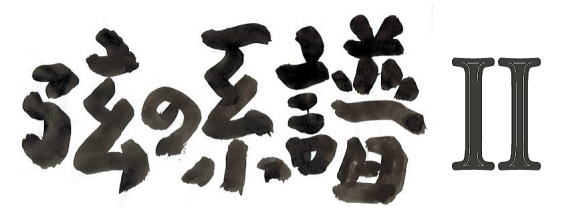 弦の系譜 II